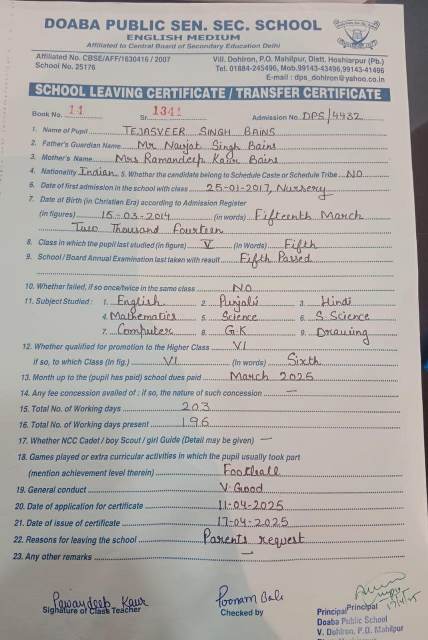 DOABA PUBLIC SEN. SEC. SCHOOL
ENGLISH MEDIUM
Affiliated to Central Board of Secondary Education Delhi
Affiliated No. CBSE/AFF/1630416 / 2007
Vill. Dohlron, P.O. Mahilpur, Distt. Hoshiarpur (Pb.)
School No. 25176
Tel. 01884-245496, Mob.99143-43496,99143-41496
E-mail : dps_dohlron@yahoo.co.in
SCHOOL LEAVING CERTIFICATE / TRANSFER CERTIFICATE
Book No. 14 Sr. 1341 Admission No. DPS/4432
1. Name of Pupil TEJASVEER SINGH BAINS
2. Father's Guardian Name Mr Navjot Singh Bains
3. Mother's Name Mrs Ramandeep Kaur Bains
4. Nationality Indian 5. Whether the candidate belong to Schedule Caste or Schedule Tribe NO
6. Date of first admission in the school with class 25-01-2017, Nursery
7. Date of Birth (in Christian Era) according to Admission Register
(in figures) 15-03-2014 (in words) Fifteenth March
Two Thousand Fourteen
8. Class in which the pupil last studied (in figure) V (in Words) Fifth
9. School / Board Annual Examination last taken with result Fifth Passed
10. Whether failed, if so once/twice in the same class NO
11. Subject Studied : 1. English 2. Punjabi 3. Hindi
4. Mathematics 5. Science 6. S. Science
7. Computer 8. G.K 9. Drawing
12. Whether qualified for promotion to the Higher Class VI
if so, to which Class (in fig.) VI (in words) Sixth
13. Month up to the (pupil has paid) school dues paid March 2025
14. Any fee concession availed of : if so, the nature of such concession —
15. Total No. of Working days 203
16. Total No. of Working days present 196
17. Whether NCC Cadet / boy Scout / girl Guide (Detail may be given) —
18. Games played or extra curricular activities in which the pupil usually took part
(mention achievement level therein) Football
19. General conduct V. Good
20. Date of application for certificate 11-04-2025
21. Date of issue of certificate 17-04-2025
22. Reasons for leaving the school Parents request
23. Any other remarks —
Pawandeep Kaur
Signature of Class Teacher
Poonam Bali
Checked by
Principal Principal
Doaba Public School
V. Dohlron, P.O. Mahilpur